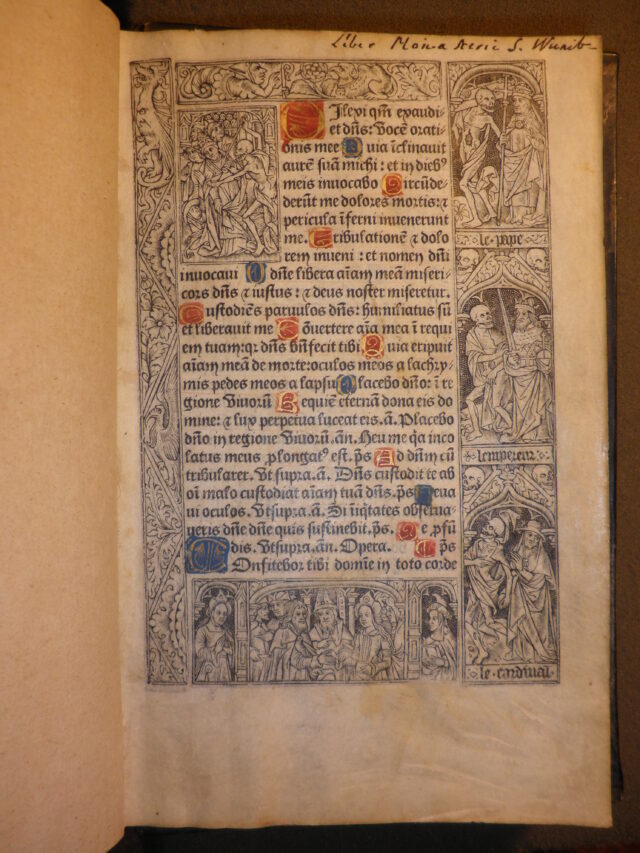 Liber Monasterii S. Wunib
Ilexi qm̄ exaudi-
et dn̄s: vocē orati
onis mee Quia īclinauit
aurē suā michi: et in dieb⁹
meis inuocabo Circūde-
derūt me dolores mortis: ⁊
pericula īferni inuenerunt
me. Tribulationē ⁊ dolo
rem inueni: et nomen dn̄i
inuocaui O dn̄e libera aīam meā miseri
cors dn̄s ⁊ iustus: ⁊ deus noster miseretur.
Custodiēs paruulos dn̄s: humiliatus sū
et liberauit me Cōuertere aīa mea ī requi
em tuam: qꝛ dn̄s bn̄fecit tibi. Quia eripuit
aīam meā de morte: oculos meos a lachry
mis pedes meos a lapsu Placebo dn̄o: ī re
gione viuorū Requiē eternā dona eis do
mine: ⁊ lux perpetua luceat eis. ā. Placebo
dn̄o in regione viuorū. an̄. Heu me qa inco
latus meus ꝓlongat⁹ est. p̄s Ad dn̄m cū
tribularer. vt supra. ā. Dn̄s custodit te ab
oī malo custodiat aīam tuā dn̄s. p̄s Leua
ui oculos. vt supra. ā. Si īiqtates obserua-
ueris dn̄e dn̄e quis sustinebit. p̄s. De ꝓfū
dis. vt supra. an̄. Opera. p̄s
Confitebor tibi domīe in toto corde
le pape
lempereur
le cardinal